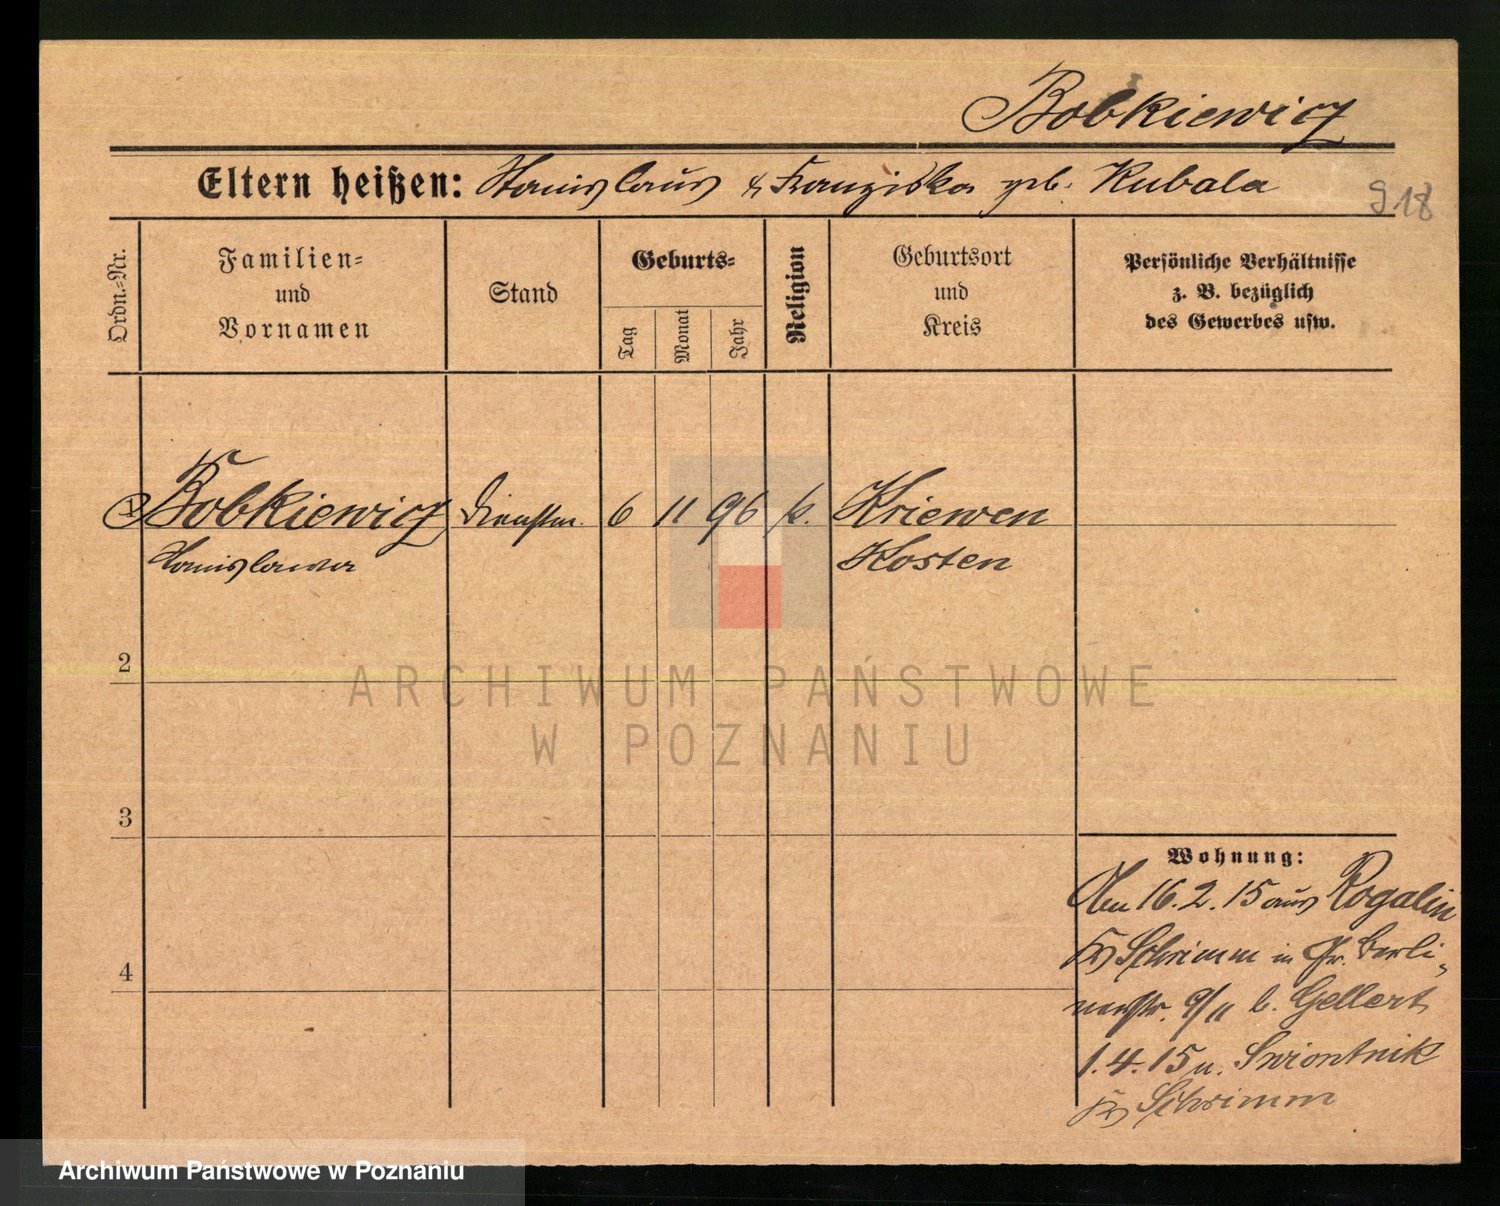 Bobkiewicz
Eltern heißen: Stanislaus & Franziska geb. Kubala
918
Ordn.-Nr.
Familien-
und
Vornamen
Stand
Geburts-
Tag
Monat
Jahr
Religion
Geburtsort
und
Kreis
Persönliche Verhältnisse
z. B. bezüglich
des Gewerbes usw.
1 Bobkiewicz Dienstm. 6 11 96 k. Kriewen
Stanislawa Kosten
2
3
4
Wohnung:
Am 16.2.15 aus Rogalin
Kr Schrimm in Gr. Berli-
nerstr. 9/II b. Gellert
1.4.15 n. Swiontnik
Kr Schrimm
ARCHIWUM PAŃSTWOWE
W POZNANIU
Archiwum Państwowe w Poznaniu